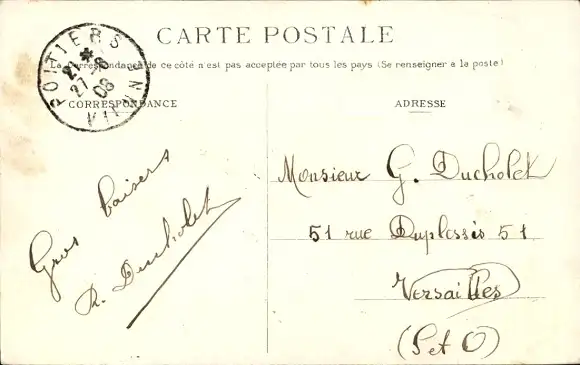 CARTE POSTALE
La Correspondance de ce côté n'est pas acceptée par tous les pays (Se renseigner à la poste)
POITIERS
VIENNE
27 - 8
08
CORRESPONDANCE
ADRESSE
Gros baisers
R. Ducholet
Monsieur G. Ducholet
51 rue Duplessis 51
Versailles
(S et O)